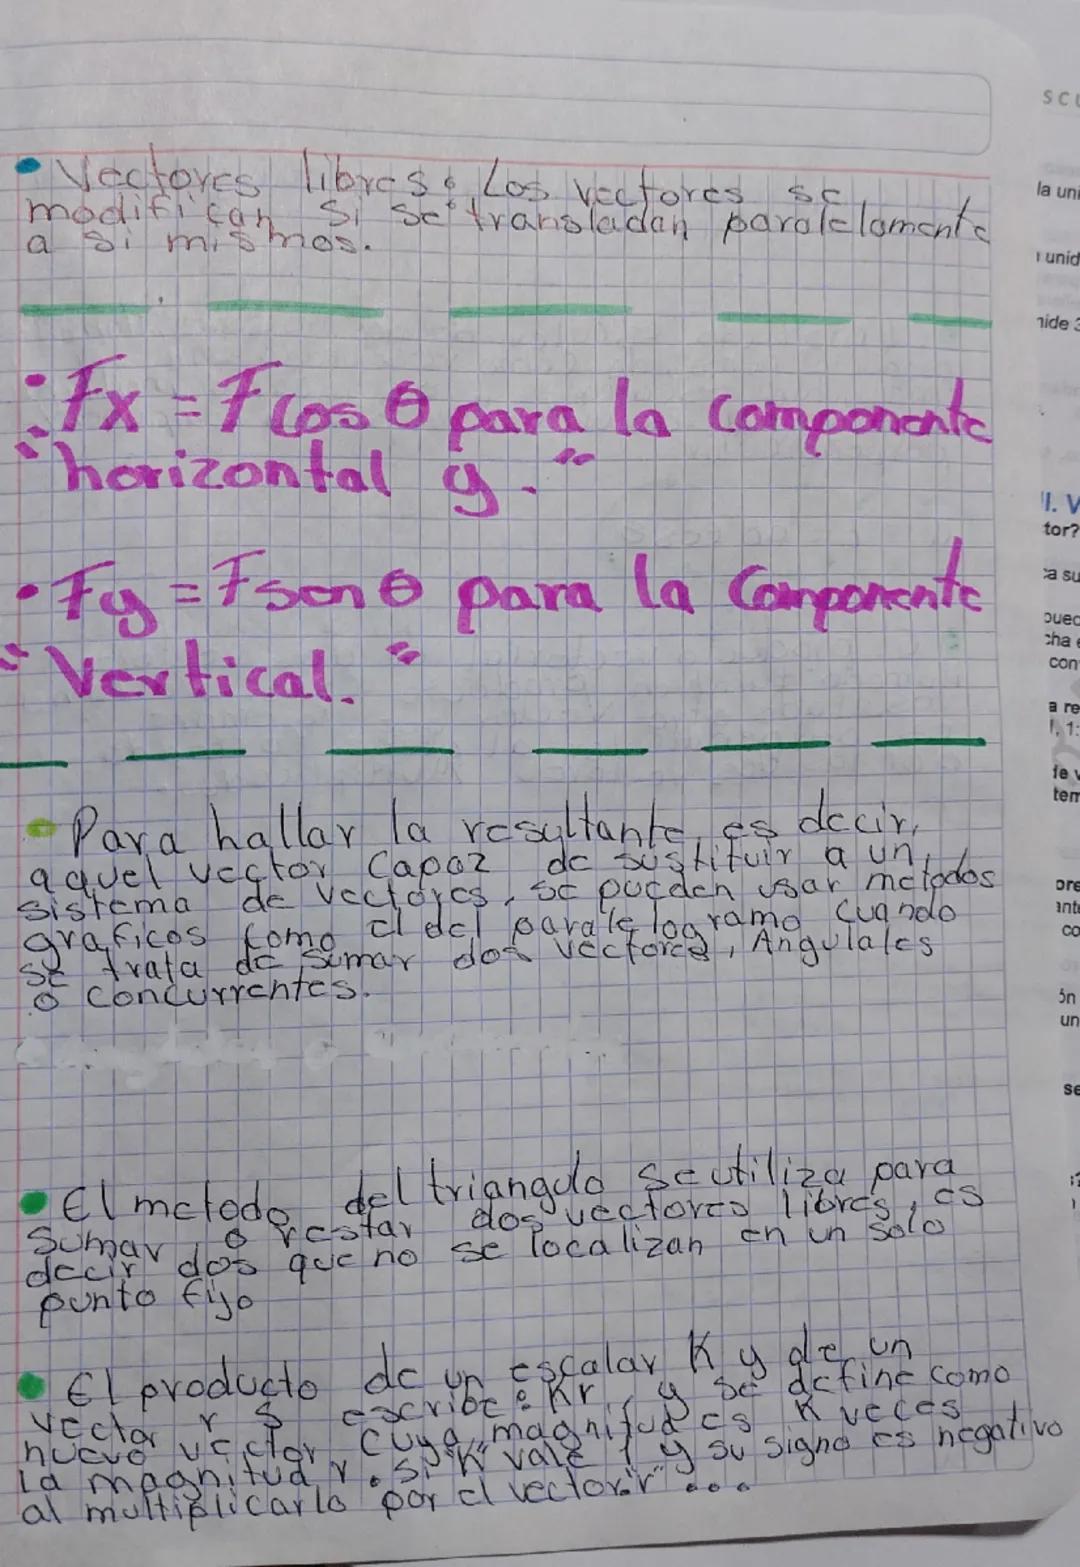 • Vectores libres: Los vectores se
modifican si se transladan paralelamente
a si mismos.
• Fx = F cos θ para la componente
"horizontal y."
• Fy = F sen θ para la Componente
"Vertical."
• Para hallar la resultante, es decir,
aquel vector Capaz de sustituir a un
sistema de vectores, se pueden usar metodos
graficos como el del paralelogramo cuando
se trata de sumar dos vectores, Angulales
o concurrentes.
• El metodo del triangulo se utiliza para
sumar o restar dos vectores libres, es
decir dos que no se localizan en un solo
punto fijo
• El producto de un escalar K y de un
vector r s escribe: Kr, y se define como
nuevo vector cuya magnitud es K veces
la magnitud r. si "K" vale 1 y su signo es negativo
al multiplicarlo por el vector "r" ...
la uni
unid
nide 3
II. V
tor?
ca su
pued
cha e
con
a re
1, 1:
de v
tem
ore
ante
co
ón
un
se